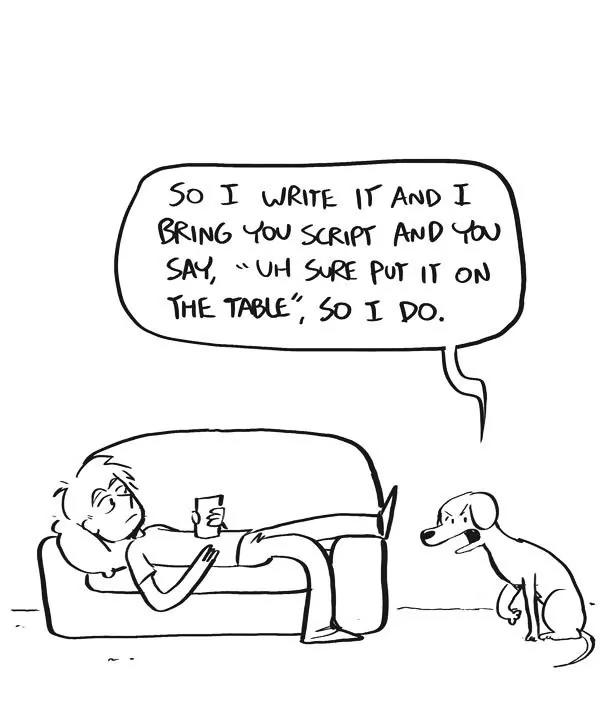 SO I WRITE IT AND I
BRING YOU SCRIPT AND YOU
SAY, "UH SURE PUT IT ON
THE TABLE", SO I DO.